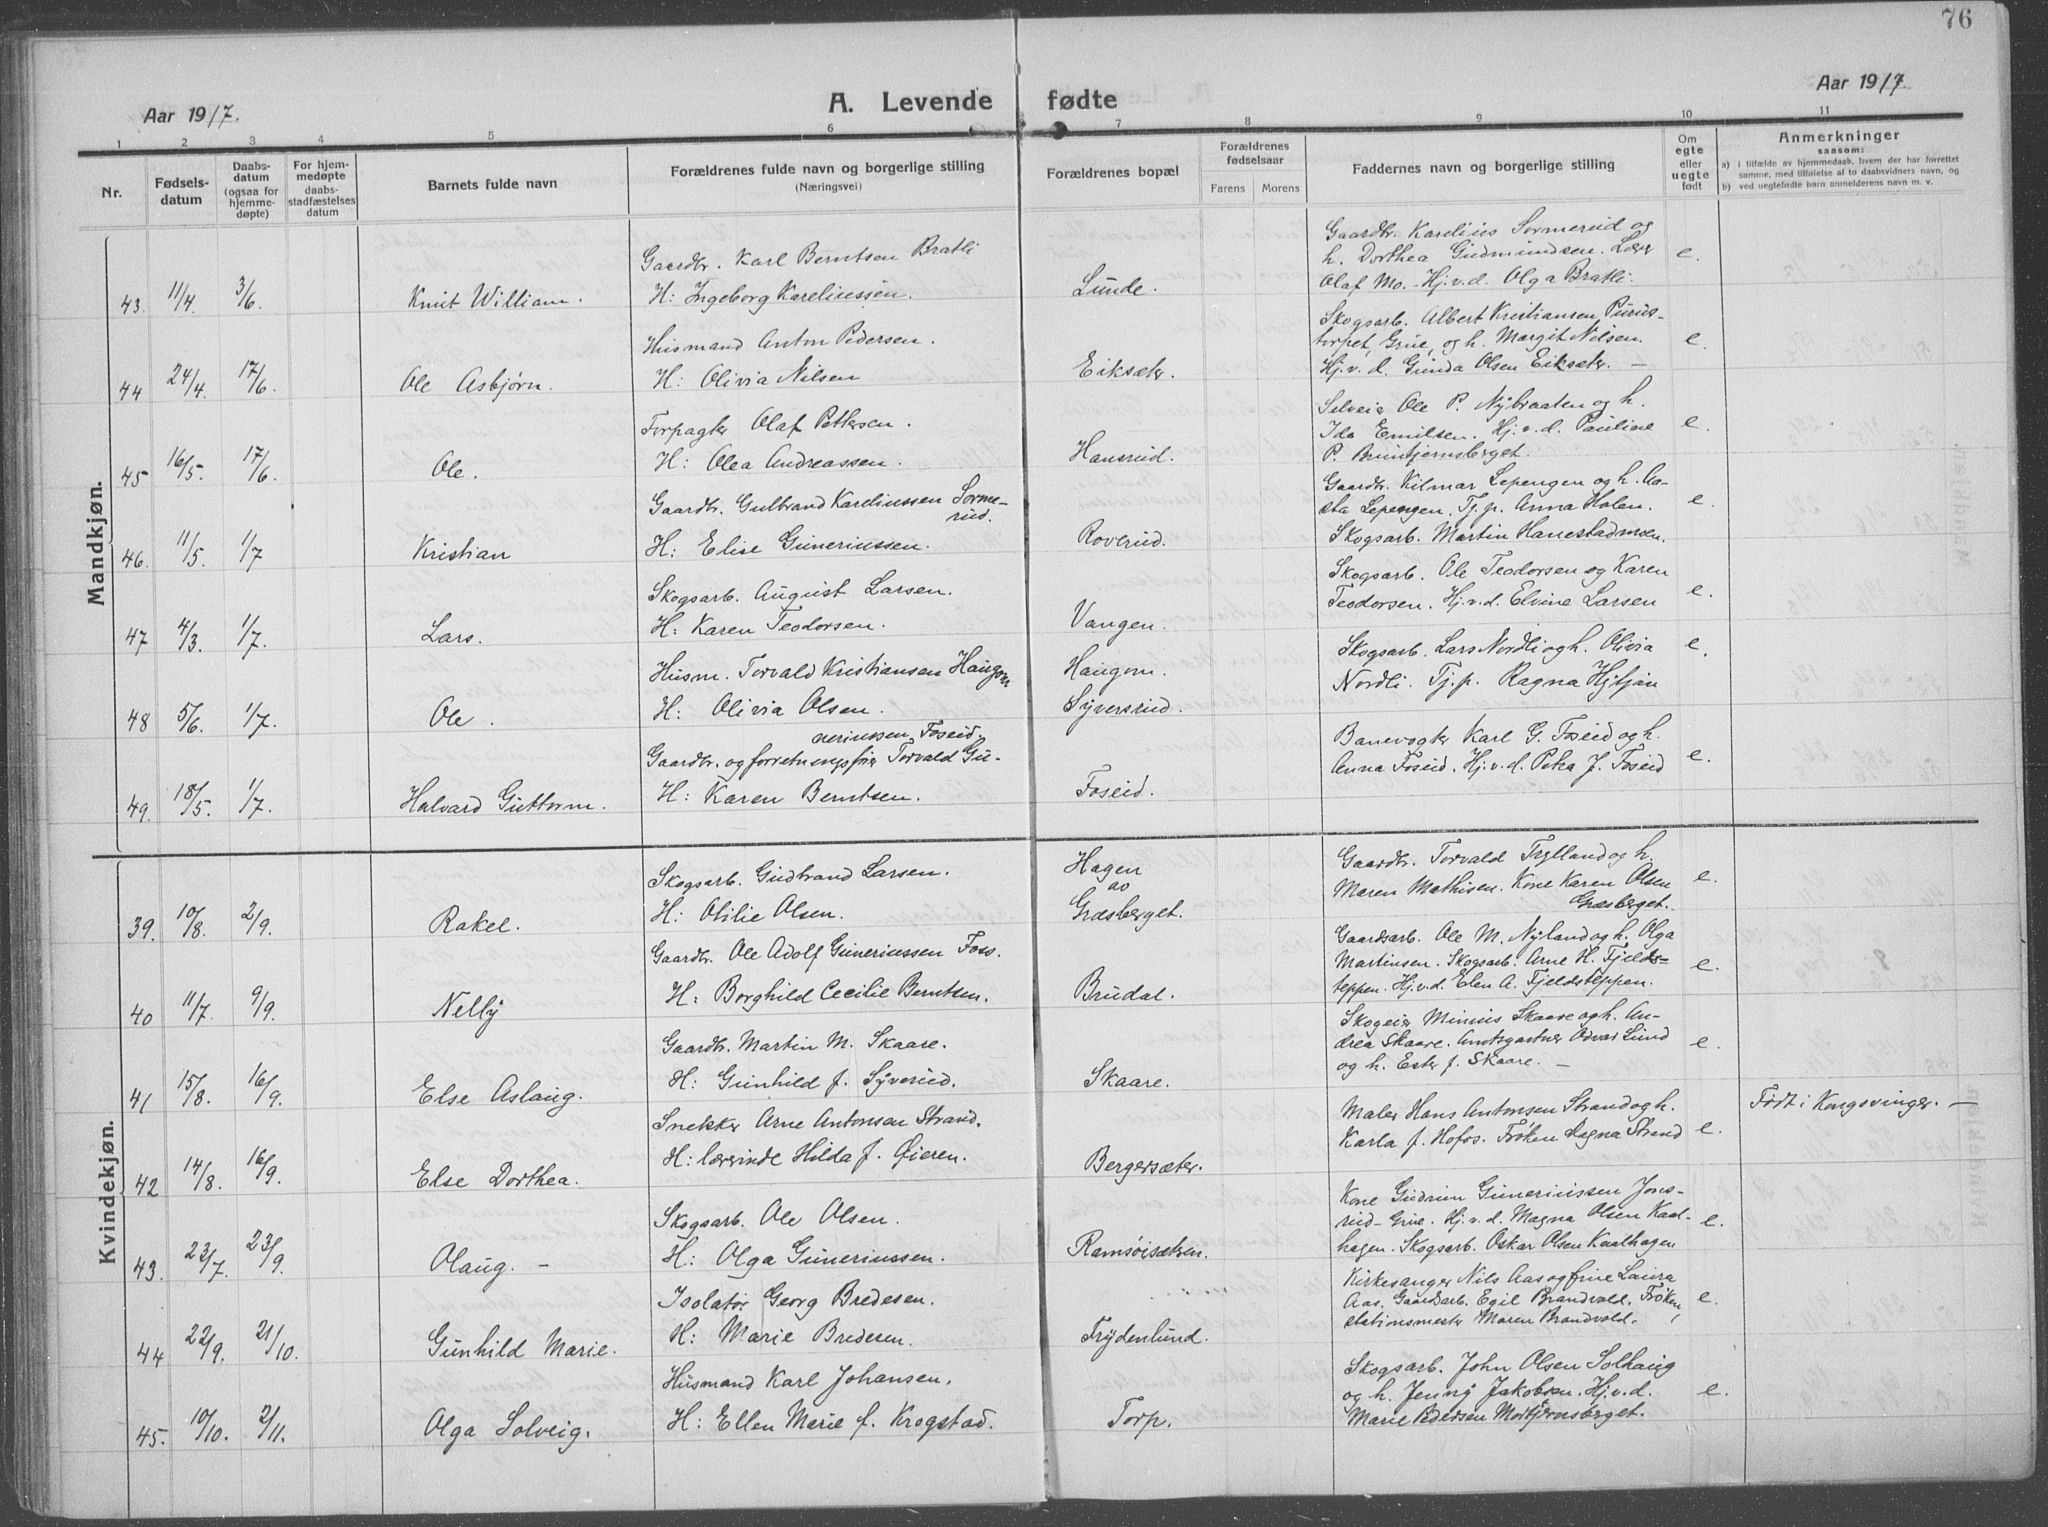 76
Aar 1917.
A. Levende fødte
Aar 1917.
1 2 3 4 5 6 7 8 9 10 11
Nr.
Fødsels-
datum
Daabs-
datum
(ogsaa for
hjemme-
døpte)
For hjem-
medøpte
daabs-
stadfæstelses
datum
Barnets fulde navn
Forældrenes fulde navn og borgerlige stilling
(Næringsvei)
Forældrenes bopæl
Forældrenes
fødselsaar
Farens Morens
Faddernes navn og borgerlige stilling
Om
egte
eller
uegte
født
Anmerkninger
saasom:
a) i tilfælde av hjemmedaab, hvem der har forrettet
samme, med tilføielse af to daabsvidners navn, og
b) ved uegtefødte barn anmelderens navn m. v.
Mandkjøn.
43 11/4 3/6. Knut William.
Gaardbr. Karl Berntsen Bratli
H: Ingeborg Kareliussen.
Lunde.
Gaardbr. Karelius Sormerud og
h. Dorthea Gudmundsen. Lærer
Olaf Mo. Hj.v.d. Olga Bratli.
e.
44 24/4. 17/6. Ole Asbjørn.
Husmand Anton Pedersen.
H: Olivia Nilsen
Eiksæter.
Skogsarb. Albert Kristiansen Purus-
torpet, Grue, og h. Margit Nilsen.
Hj.v.d. Gunda Olsen Eiksæter. —
e.
45 16/5. 17/6. Ole.
Forpagter Olaf Pettersen.
H: Olea Andreassen.
Hansrud.
Selveier Ole P. Nybraaten og h.
Ida Emilsen. Hj.v.d. Pauline
P. Bruntjernsberget.
e.
46. 11/5. 1/7 Kristian
Gaardbr. Gulbrand Kareliussen Sorme-
rud.
H: Elise Guneriussen.
Roverud.
Gaardbr. Kilmar Lepengen og h. Aa-
sta Lepengen. Tj.p. Anna Holen.
Skogsarb. Martin Hanestadmoen.
e.
47 4/3. 1/7. Lars.
Skogsarb. August Larsen.
H: Karen Teodorsen.
Vangen.
Skogsarb. Ole Teodorsen og Karen
Teodorsen. Hj.v.d. Elvine Larsen
e.
48 5/6. 1/7. Ole.
Husm. Torvald Kristiansen Haugom
H: Olivia Olsen.
Haugom.
Syversrud.
Skogsarb. Lars Nordli og h. Olivia
Nordli. Tj.p. Ragna Hytjan
e.
49. 18/5. 1/7. Halvard Guttorm.
neriussen Foseid.
Gaardbr. og forretningsfører Torvald Gu-
H: Karen Berntsen.
Foseid.
Banevogter Karl G. Foseid og h.
Anna Foseid. Hj.v.d. Petra J. Foseid
e.
Kvindekjøn.
39. 10/8. 2/9. Rakel.
Skogsarb. Gudbrand Larsen.
H: Otilie Olsen.
Hagen
av
Græsberget.
Gaardbr. Torvald Trylland og h.
Maren Mathisen. Kone Karen Olsen
Græsberget.
e.
40 11/7. 9/9. Nelly
Gaardbr. Ole Adolf Guneriussen Foss.
H: Borghild Cecilie Berntsen.
Brudal.
Gaardsarb. Ole M. Nyland og h. Olga
Martinsen. Skogsarb. Arne H. Fjelds-
teppen. Hj.v.d. Elen A. Fjeldsteppen.
e.
41 15/8. 16/9. Else Aslaug.
Gaardbr. Martin M. Skaare.
H: Gunhild f. Syverud.
Skaare.
Skogeier Minius Skaare og h. An-
drea Skaare. Amtsgartner Odvar Lund
og h. Ester f. Skaare. —
e.
42 14/8. 16/9. Else Dorthea.
Snekker Arne Antonsen Strand.
H: lærerinde Hilda f. Øieren.
Bergersæter.
Maler Hans Antonsen Strand og h.
Karla f. Hofos. Frøken Dagna Strand
e.
Født i Kongsvinger. —
43. 23/7. 23/9. Olaug. —
Skogsarb. Ole Olsen.
H: Olga Guneriussen.
Ramsøisætren.
Kone Gudrun Guneriussen Jons-
rud-Grue. Hj.v.d. Magna Olsen Kaal-
hagen. Skogsarb. Oskar Olsen Kaalhagen
e.
44 22/9. 21/10. Gunhild Marie.
Isolatør Georg Bredesen.
H: Marie Bredesen.
Frydenlund.
Kirkesanger Nils Aas og frue Laura
Aas. Gaardsarb. Egil Brandvold. Frøken,
stationsmester Maren Brandvold.
e.
45. 10/10. 2/11. Olga Solveig.
Husmand Karl Johansen.
H: Ellen Marie f. Krogstad.
Torp.
Skogsarb. John Olsen Solhaug
og h. Jenny Jakobsen. Hj.v.d.
Marie Pedersen Mortjernsberget.
e.